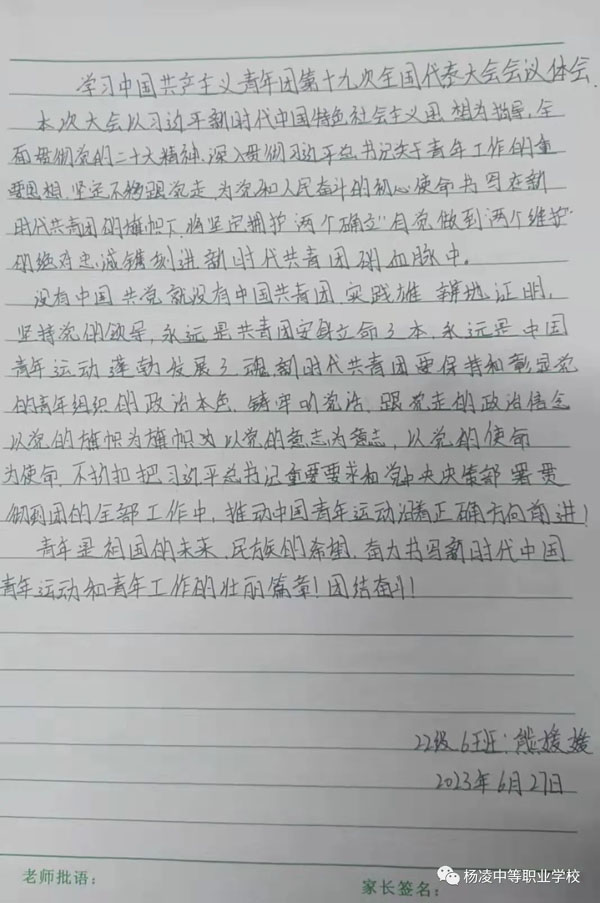 学习中国共产主义青年团第十九次全国代表大会会议体会.
本次大会以习近平新时代中国特色社会主义思想为指导,全
面贯彻党的二十大精神.深入贯彻习近平总书记关于青年工作的重
要思想.坚定不移跟党走,为党和人民奋斗的初心使命书写在新
时代共青团的旗帜下,将坚定拥护"两个确立"自觉做到"两个维护"
的绝对忠诚镌刻进新时代共青团的血脉中。
没有中国共党就没有中国共青团.实践雄辩地证明,
坚持党的领导,永远是共青团安身立命之本,永远是中国
青年运动蓬勃发展之魂,新时代共青团要保持和彰显党
的青年组织的政治本色.铸牢听党话,跟党走的政治信念
以党的旗帜为旗帜为以党的意志为意志,以党的使命
为使命.不折扣把习近平总书记重要要求和党中央决策部署贯
彻到团的全部工作中,推动中国青年运动沿着正确方向前进!
青年是祖国的未来,民族的希望,奋力书写新时代中国
青年运动和青年工作的壮丽篇章!团结奋斗!
22级6班:熊媛媛
2023年6月27日
老师批语:
家长签名:
杨凌中等职业学校